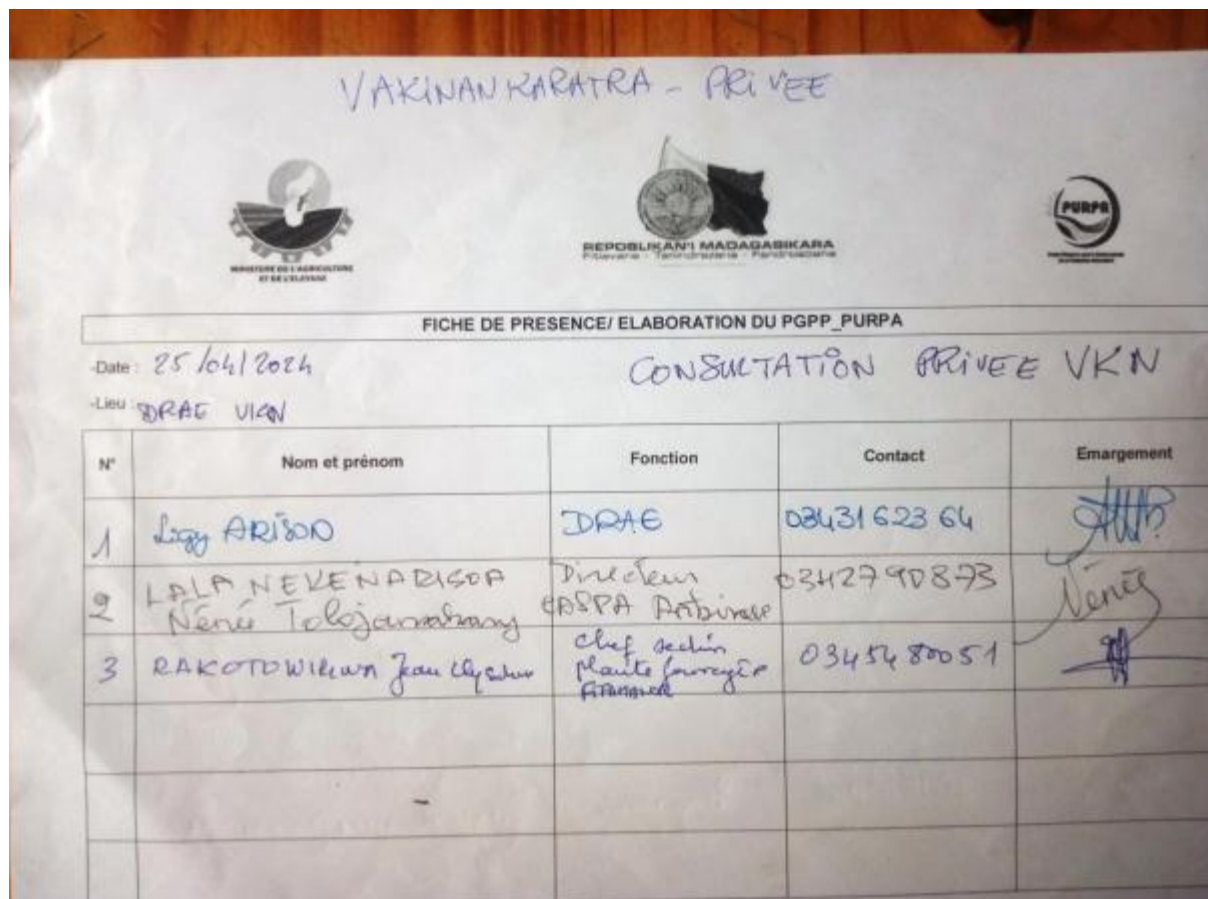 VAKINANKARATRA - PRIVEE
MINISTERE DE L'AGRICULTURE
ET DE L'ELEVAGE
REPOBLIKAN'I MADAGASIKARA
Fitiavana - Tanindrazana - Fandrosoana
PURPA
FICHE DE PRESENCE/ ELABORATION DU PGPP_PURPA
-Date : 25/04/2024 CONSULTATION PRIVEE VKN
-Lieu : DRAE VKN
N° Nom et prénom Fonction Contact Emargement
1 ARISON DRAE 0343162364
2 LALA NEKENARISOA Directeur 0342790873
Néné CASPA
3 Jean Chef section 0345480051
plante